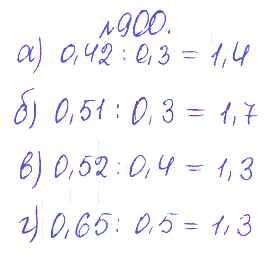 №900.
а) 0,42 : 0,3 = 1,4
б) 0,51 : 0,3 = 1,7
в) 0,52 : 0,4 = 1,3
г) 0,65 : 0,5 = 1,3